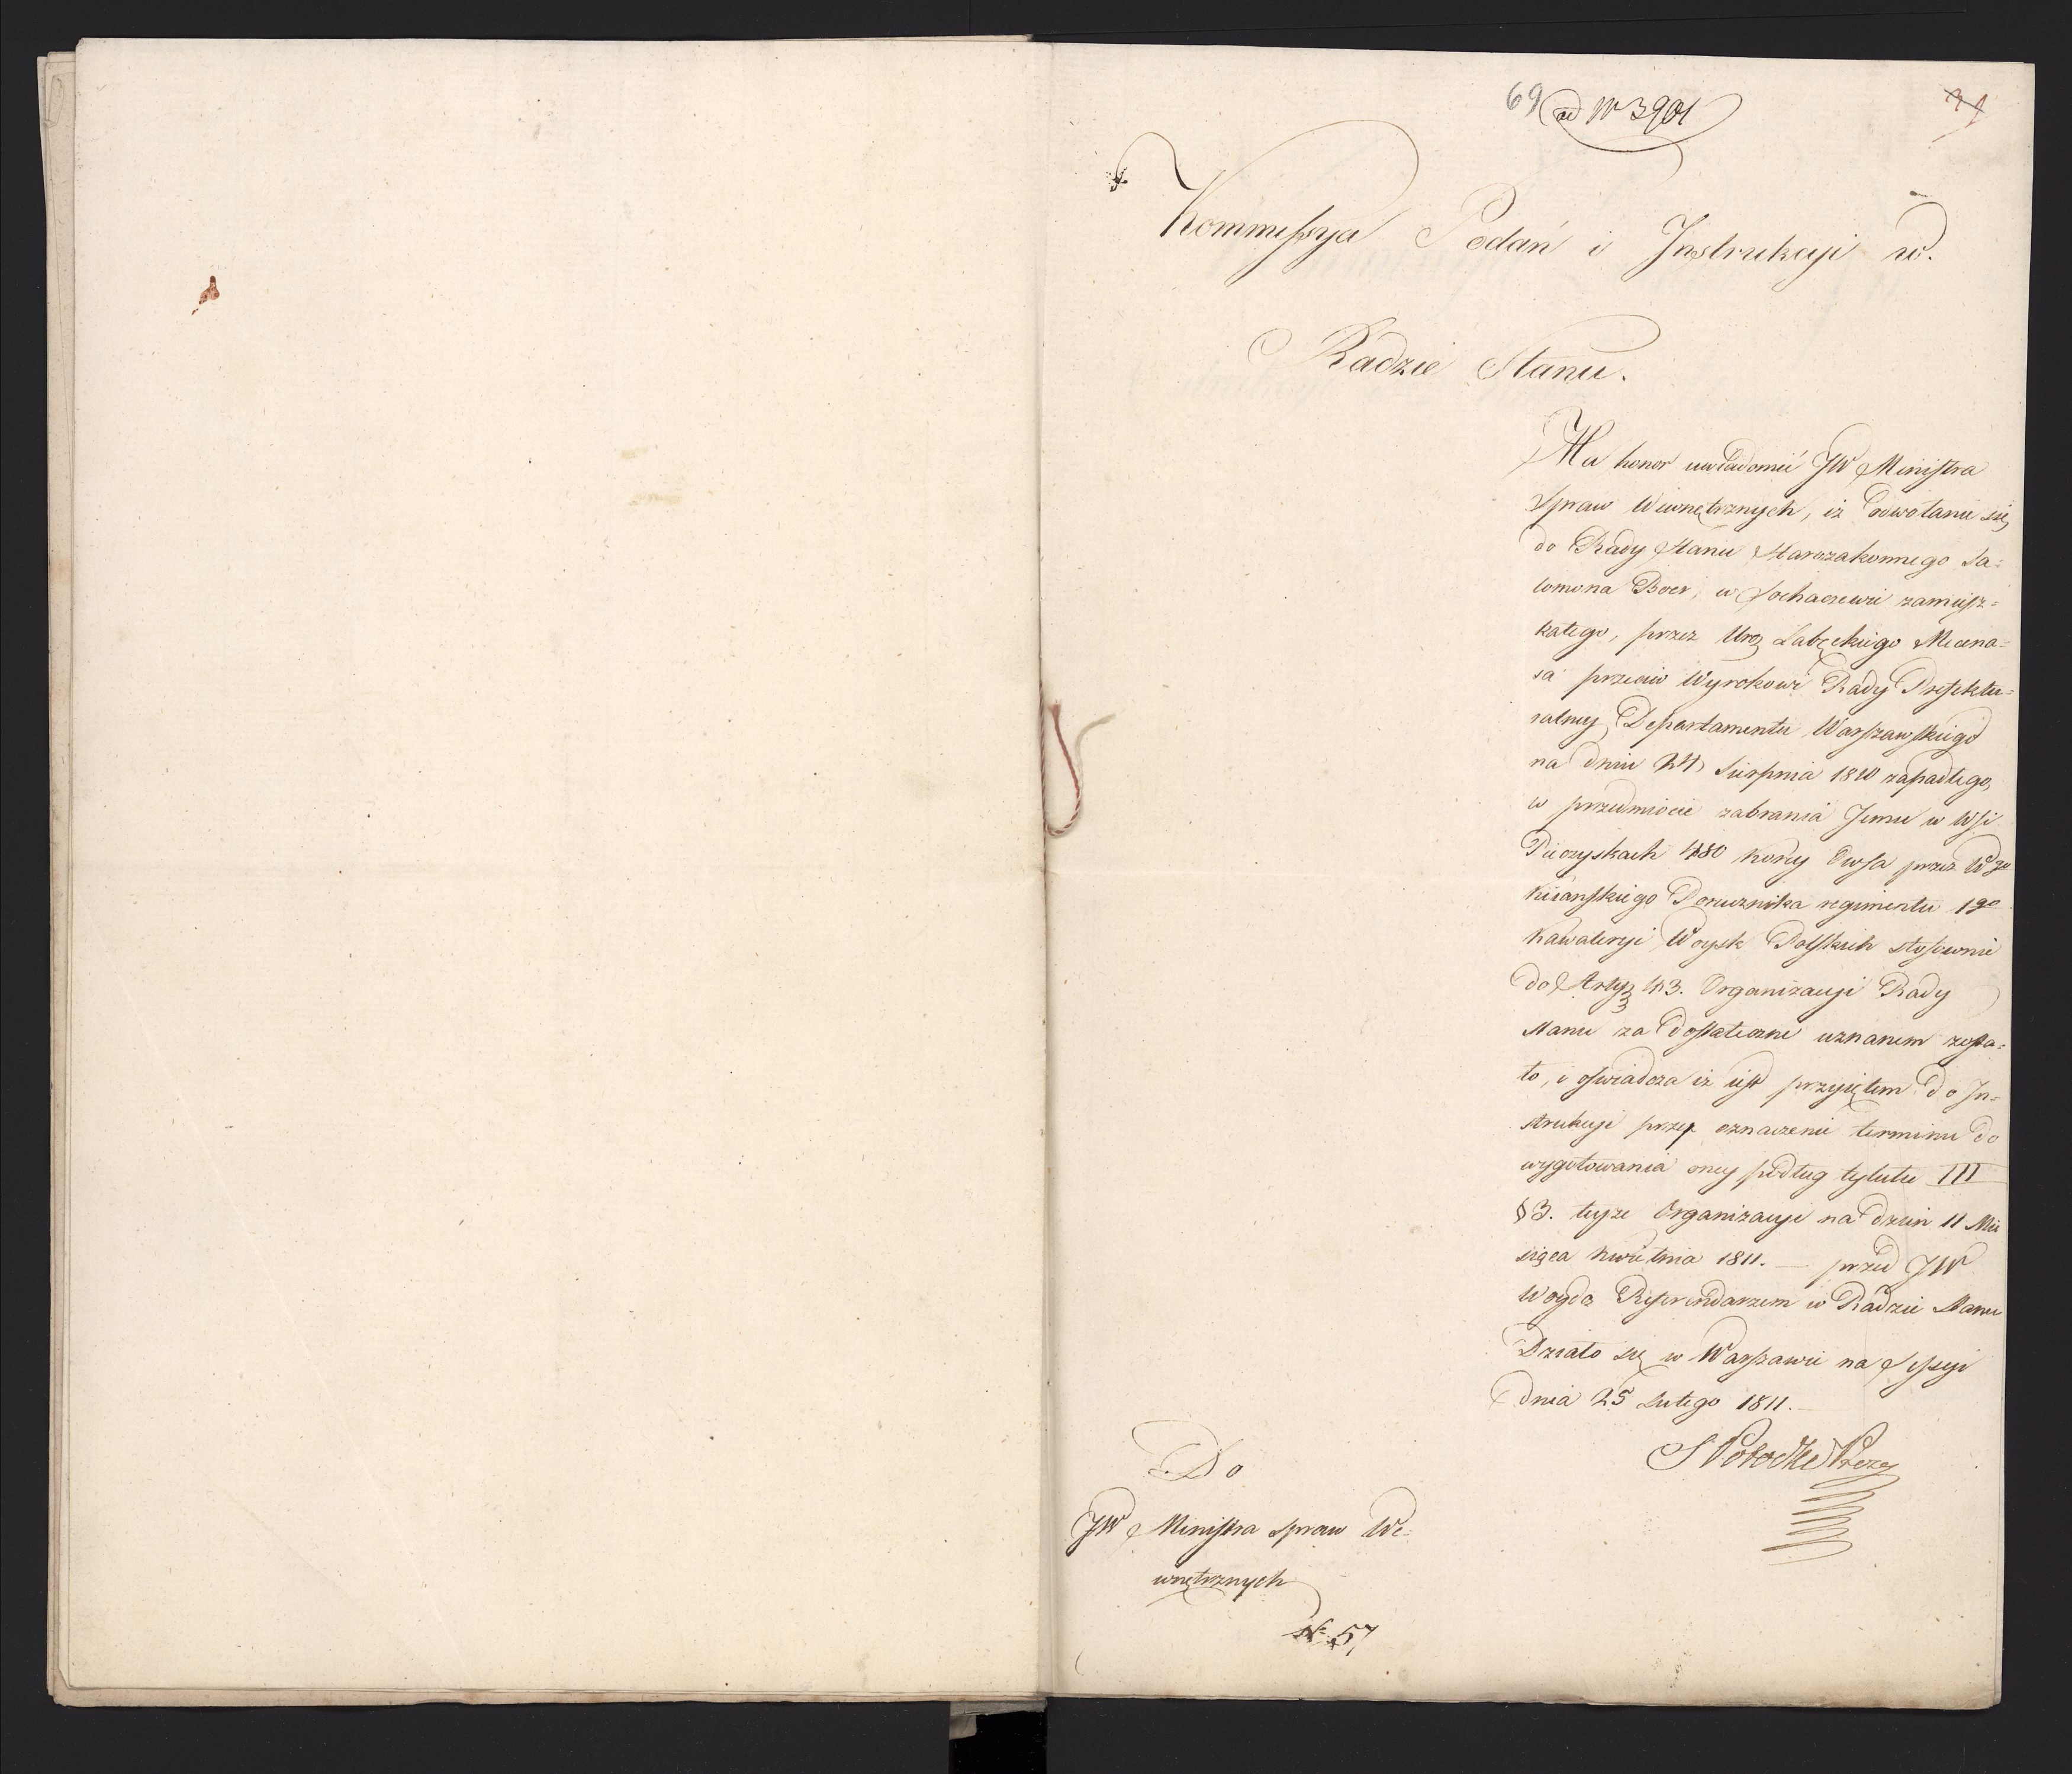 69 ad Nr 3901
31
Kommissya Podań i Instrukcyi w.
Radzie Stanu.
Ma honor uwiadomić JW Ministra
Spraw Wewnętrznych, iż odwołanie się
do Rady Stanu Starozakonnego Sa=
lomona Boer, w Sochaczewie zamiesz=
kałego, przez Uro Łabęckiego Mecena=
sa przeciw Wyrokowi Rady Prefektu=
ralney Departamentu Warszawskiego
na dniu 24 Sierpnia 1810 zapadłego,
w przedmiocie zabrania Jemu w Wsi
Pieczyskach 480 korcy Owsa przez Wgo
Porucznika regimentu 1go
Kawaleryi Woysk Polskich stosownie
do Arty 43. Organizacyi Rady
Stanu za dostateczne uznanem zosta=
ło, i oświadcza iż jest przyjętem do In=
strukcyi przy oznaczeniu terminu do
wygotowania oney podług tytułu III
§3. teyże Organizacyi na dzień 11 Mie
siąca Kwietnia 1811. — przed JW
Woyda Referendarzem w Radzie Stanu
Działo się w Warszawie na Sessyi
dnia 25 Lutego 1811.
S Potocki Prezy
Do
JW Ministra Spraw We=
wnętrznych
57